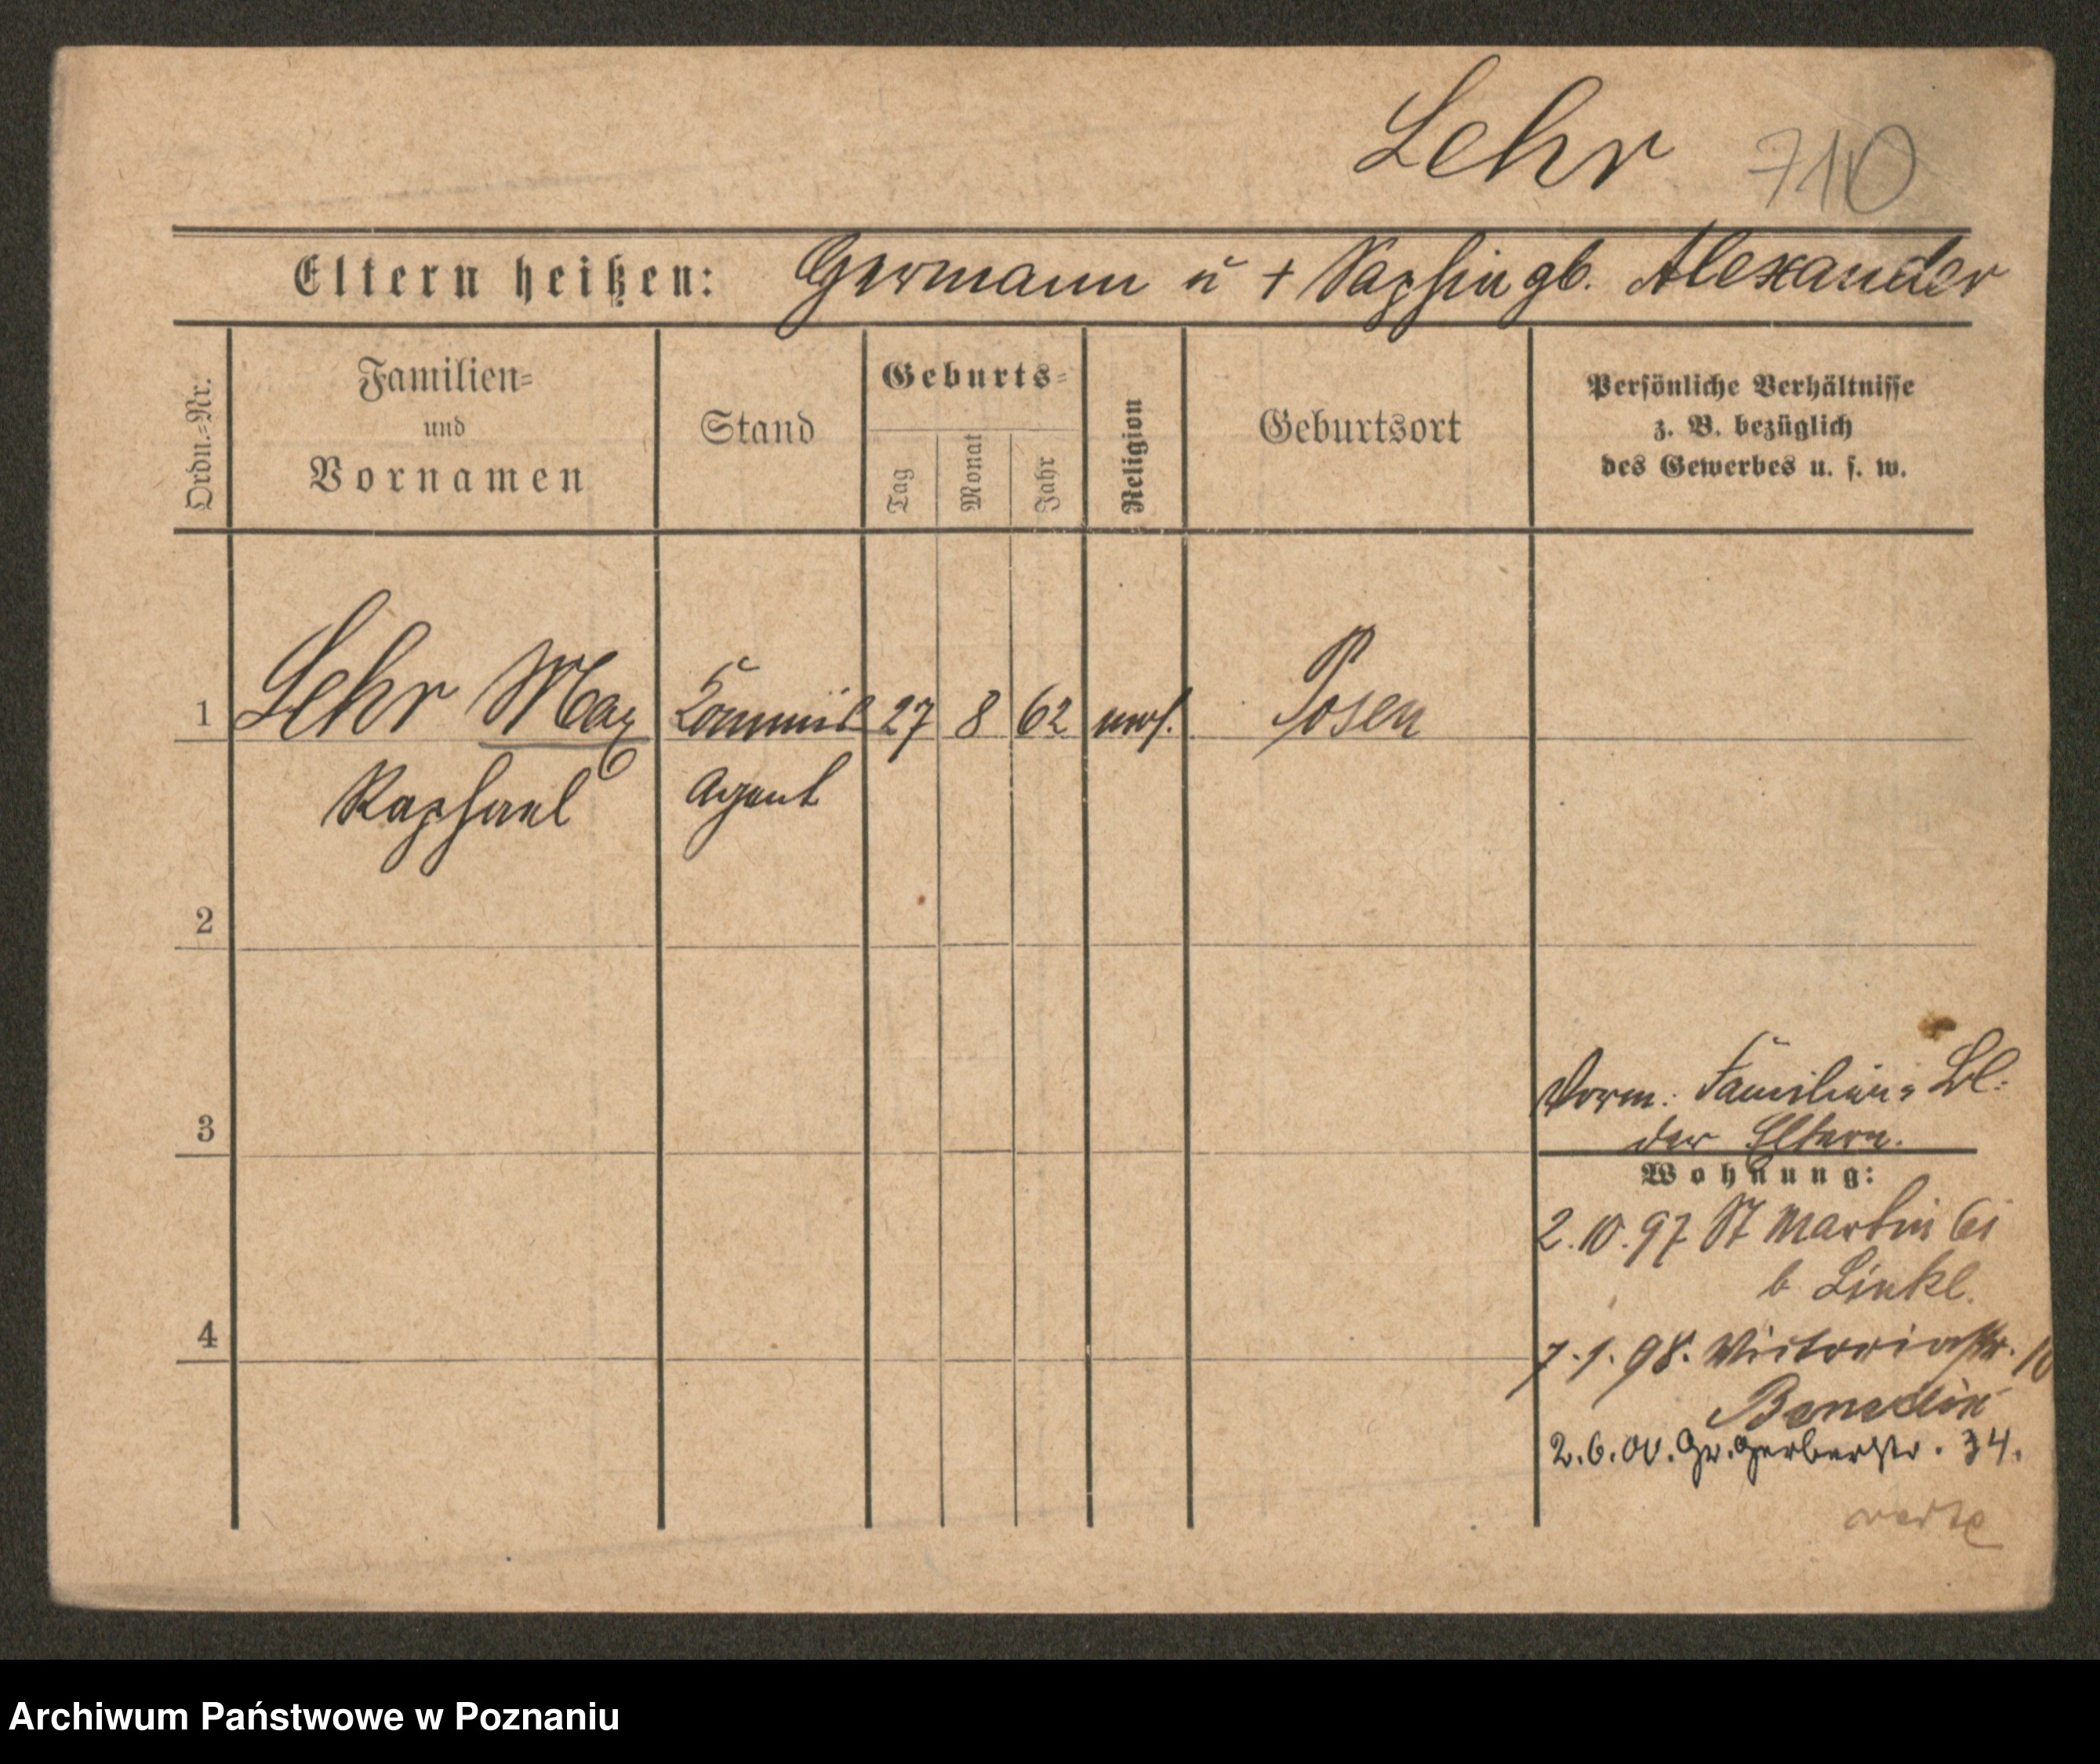 Lehr 710
Eltern heißen: Hermann u + Sophie gb. Alexander
Ordn.=Nr.
Familien=
und
Vornamen
Stand
Geburts=
Tag
Monat
Jahr
Religion
Geburtsort
Persönliche Verhältnisse
z. B. bezüglich
des Gewerbes u. s. w.
1 Lehr Max Commiss 27 8 62 mos. Posen
Raphael Agent
2
Vorm. Familien= Bl.
3 der Eltern.
Wohnung:
2.10.97 St Martin 61
b
4 7.1.98. Victoriastr. 10
2.6.00. Gr. Gerberstr. 34.
Archiwum Państwowe w Poznaniu